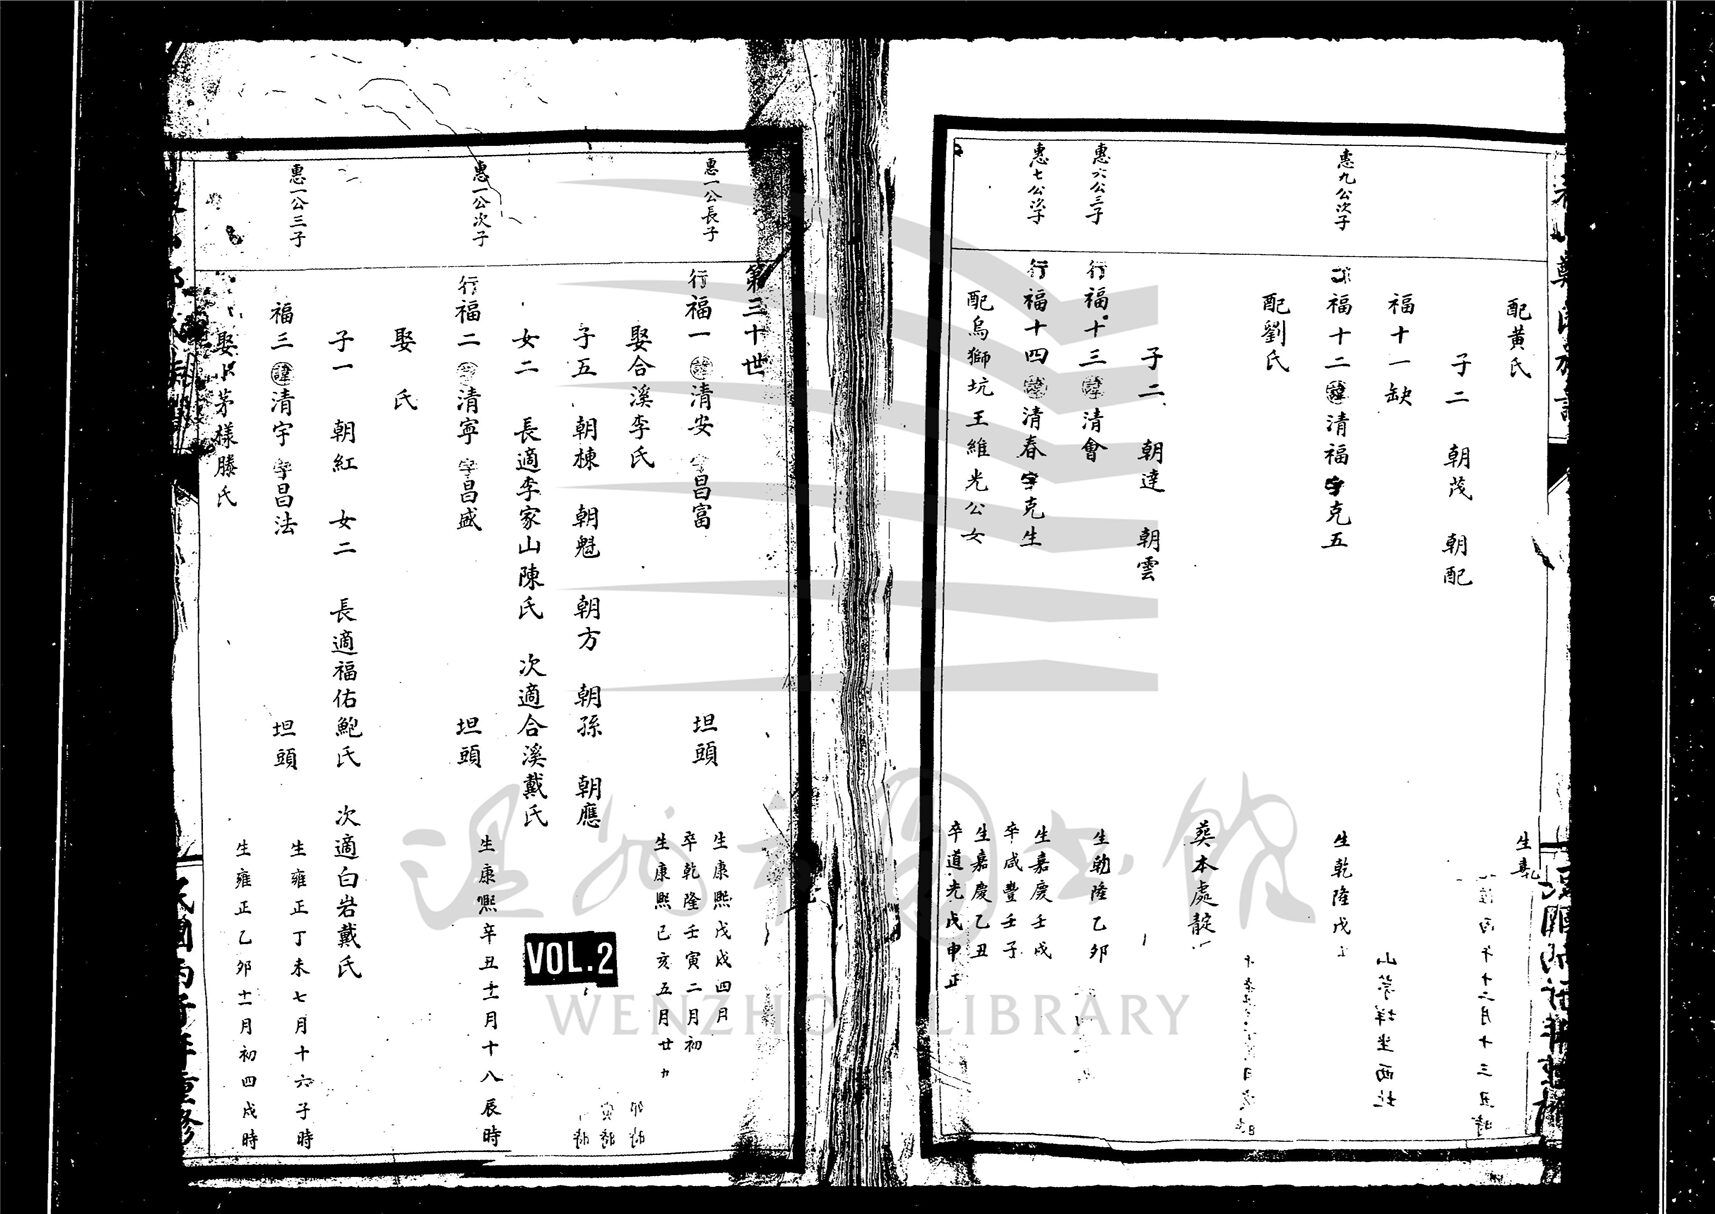 配黄氏
生嘉
子二 朝茂 朝配
福十一缺
惠九公次子
福十二 諱清福 字克五
生乾隆戊
配劉氏
葬本處
子二 朝達 朝雲
惠六公三子
行福十三 諱清會
生乾隆乙卯
惠七公次子
行福十四 諱清春 字克生
生嘉慶壬戌
卒咸豐壬子
配烏獅坑王維光公女
生嘉慶乙丑
卒道光戊申正
第三十世
惠一公長子
行福一 諱清安 字昌富 坦頭
生康熙戊戌四月
卒乾隆壬寅二月初
娶合溪李氏
生康熙己亥五月廿九
子五 朝棟 朝魁 朝方 朝孫 朝應
女二 長適李家山陳氏 次適合溪戴氏
惠一公次子
行福二 諱清寧 字昌盛 坦頭
生康熙辛丑十二月十八辰時
娶 氏
子一 朝紅 女二 長適福佑鮑氏 次適白岩戴氏
惠一公三子
福三 諱清宇 字昌法 坦頭
生雍正丁未七月十六子時
娶 茅樣滕氏
生雍正乙卯十一月初四戌時
民國丙子年重修
VOL.2
WENZHOU LIBRARY